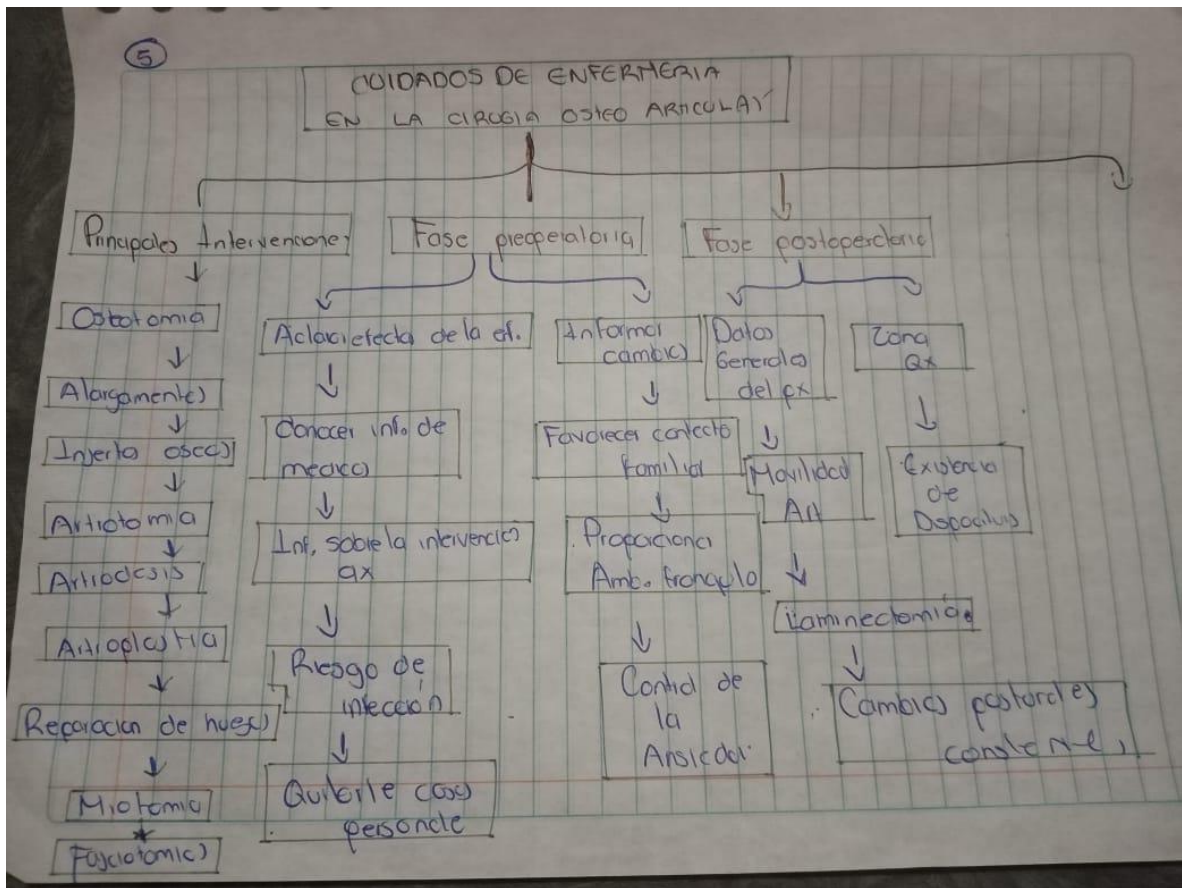 5
CUIDADOS DE ENFERMERIA
EN LA CIRUGIA OSTEO ARTICULAR
Principales Intervenciones
Fase preoperatoria
Fase postoperatoria
Ostotomia
Alargamientos
Injerto oseos
Artrotomia
Artrodesis
Artroplastia
Reparacion de huesos
Miotomia
Fasciotomias
de la ef.
Conocer info de
medico
Inf. sobre la intervencion
qx
Riesgo de
infección
Quitarle cosas
personale
Informar
cambios
Favorecer contacto
familiar
Proporciona
Amb. tranquilo
Control de
la
Ansiedad.
Datos
Generales
del px
Movilidad
Art
Laminectomia
Cambios posturales
constante
Zona
Qx
Existencia
de
Dispositivos